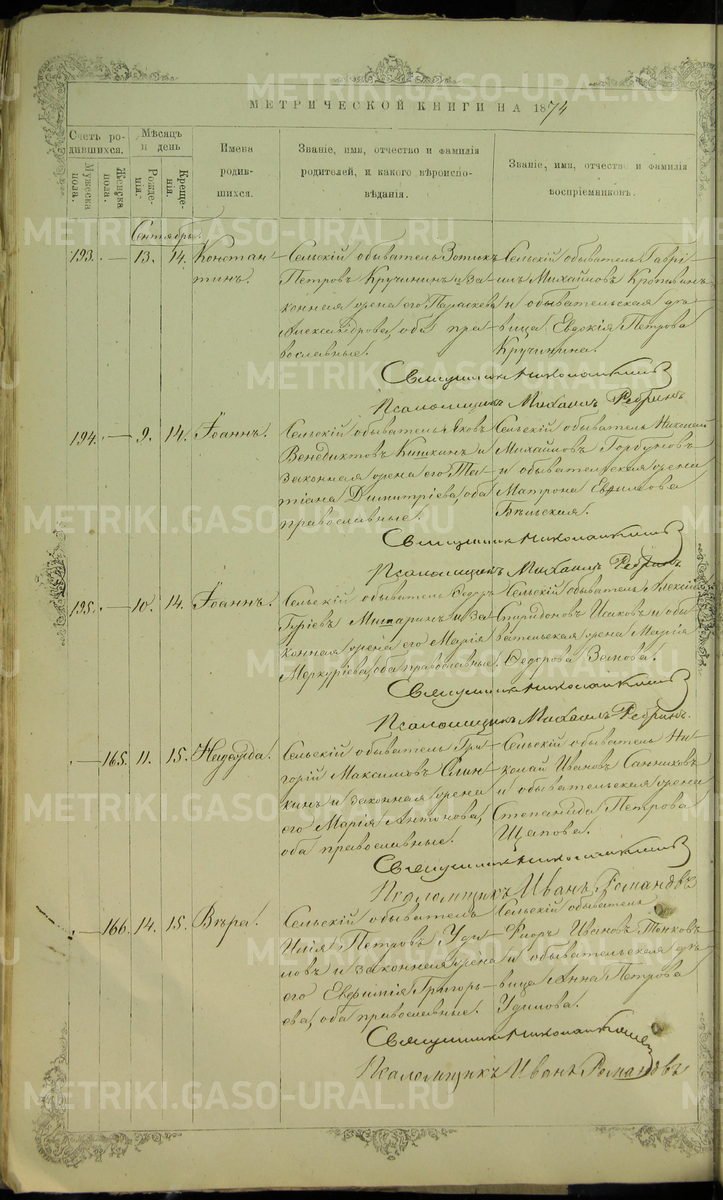 МЕТРИЧЕСКОЙ КНИГИ НА 1874
Счетъ родившихся.
Мужеска пола.
Женска пола.
Мѣсяцъ и день
Рожденія.
Крещенія.
Имена родившихся.
Званіе, имя, отчество и фамилія родителей, и какого вѣроисповѣданія.
Званіе, имя, отчество и фамилія воспріемниковъ.
Сентябрь.
193. — 13. 14. Константинъ.
Сельскій обыватель Зотикъ
Петровъ Кручининъ и за-
конная жена его Параскева
Александрова, оба пра-
вославные.
Сельскій обыватель Гаврі-
илъ Михайловъ
и обывательская дѣ-
вица Евдокія Петрова
Кручинина.
Священникъ Николай
Псаломщикъ Михаилъ Ребринъ
194. — 9. 14. Іоаннъ.
Сельскій обыватель Яковъ
Венедиктовъ Кишкинъ и
законная жена его Та-
тіана Димитріева, оба
православные.
Сельскій обыватель Николай
Михайловъ Горбуновъ
и обывательская жена
Матрона Евфимова
Священникъ Николай
Псаломщикъ Михаилъ Ребринъ
195. — 10. 14. Іоаннъ.
Сельскій обыватель Ѳедоръ
Гуріевъ и за-
конная жена его Марія
Меркуріева, оба православные.
Сельскій обыватель Алексій
Спиридоновъ Исаковъ и обы-
вательская жена Марія
Ѳодорова
Священникъ Николай
Псаломщикъ Михаилъ Ребринъ.
— 165. 11. 15. Надежда.
Сельскій обыватель Гри-
горій Максимовъ
и законная жена
его Марія Антонова,
оба православные.
Сельскій обыватель Ни-
колай Ивановъ Санниковъ
и обывательская жена
Степанида Петрова
Щапова.
Священникъ Николай
Псаломщикъ Иванъ Романовъ
— 166. 14. 15. Вѣра.
Сельскій обыватель
Илія Петровъ Уди-
ловъ и законная жена
его Евфимія Григорь-
ева, оба православные.
Сельскій обыватель
Ивановъ Тонковъ
и обывательская дѣ-
вица Анна Петрова
Удилова.
Священникъ Николай
Псаломщикъ Иванъ Романовъ
METRIKI.GASO-URAL.RU